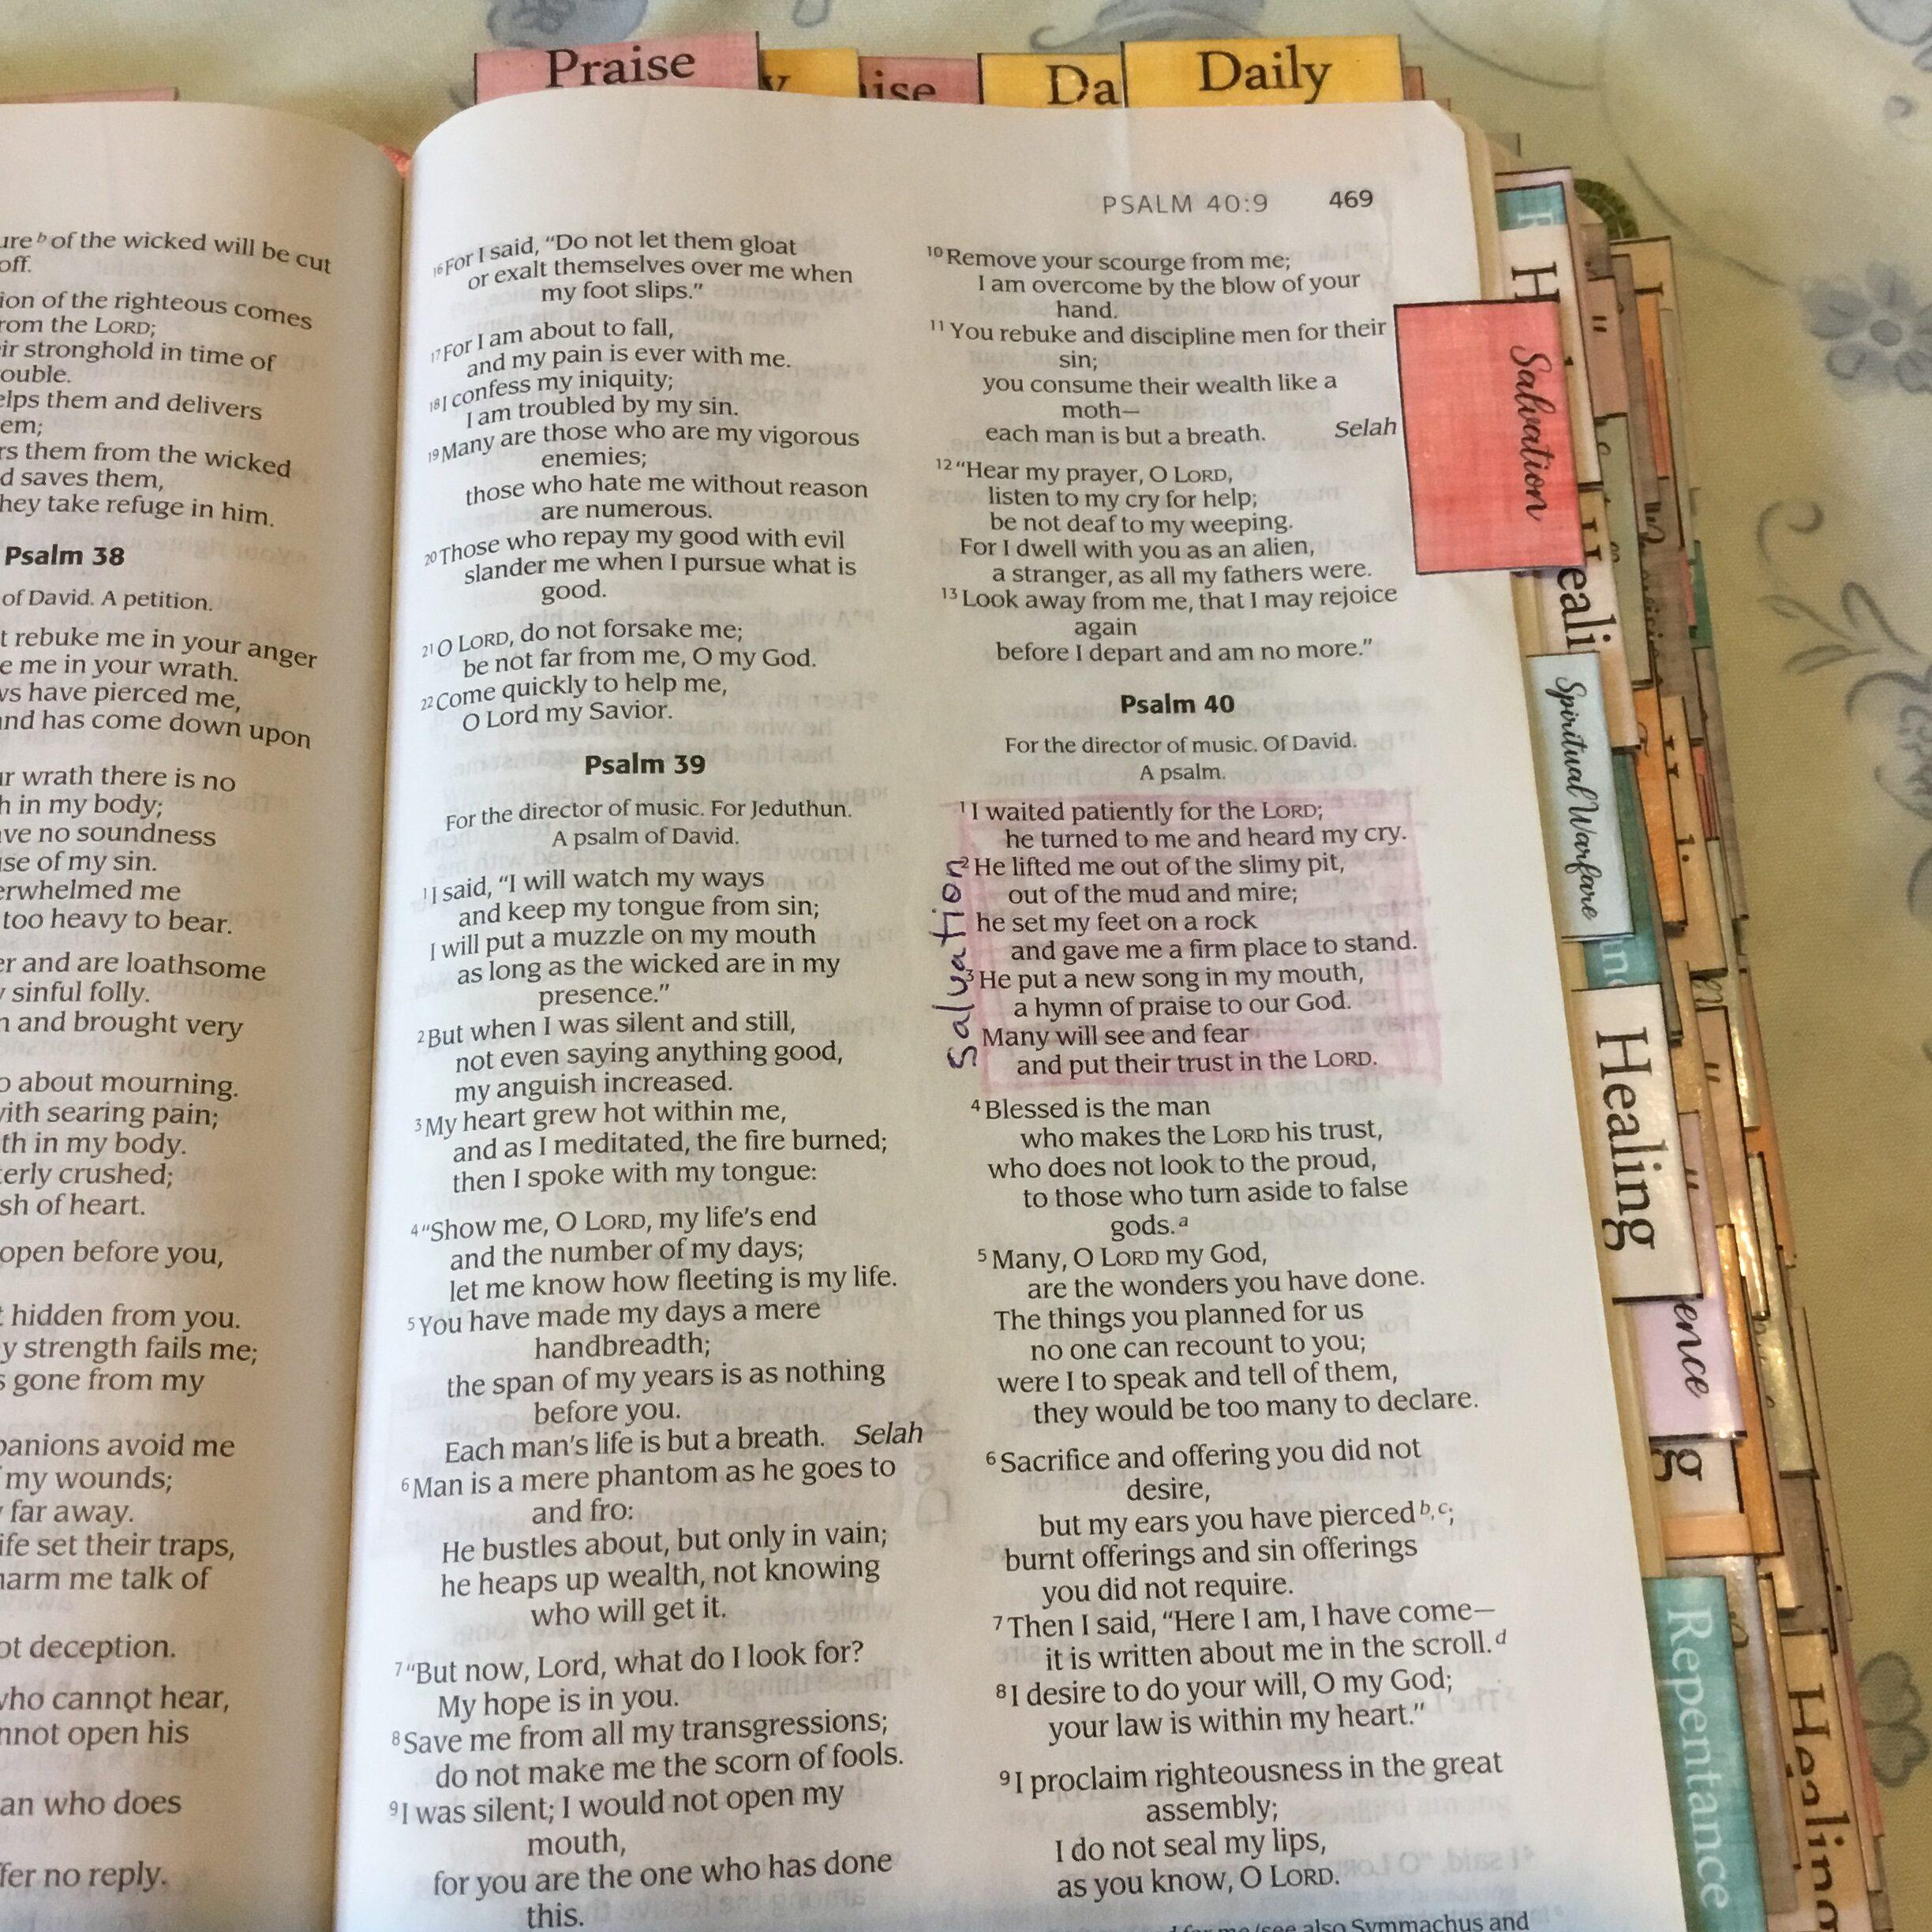 Praise
Daily
PSALM 40:9 469
of the wicked will be cut
off.
of the righteous comes
the LORD;
stronghold in time of
them and delivers
them from the wicked
saves them,
take refuge in him.
Psalm 38
of David. A petition.
rebuke me in your anger
me in your wrath.
have pierced me,
has come down upon
wrath there is no
in my body;
no soundness
of my sin.
me
too heavy to bear.
and are loathsome
sinful folly.
and brought very
about mourning.
searing pain;
in my body.
crushed;
of heart.
open before you,
hidden from you.
strength fails me;
gone from my
avoid me
my wounds;
far away.
set their traps,
me talk of
deception.
cannot hear,
open his
who does
no reply.
16 For I said, “Do not let them gloat
or exalt themselves over me when
my foot slips.”
17 For I am about to fall,
and my pain is ever with me.
18 I confess my iniquity;
I am troubled by my sin.
19 Many are those who are my vigorous
enemies;
those who hate me without reason
are numerous.
20 Those who repay my good with evil
slander me when I pursue what is
good.
21 O LORD, do not forsake me;
be not far from me, O my God.
22 Come quickly to help me,
O Lord my Savior.
Psalm 39
For the director of music. For Jeduthun.
A psalm of David.
1 I said, “I will watch my ways
and keep my tongue from sin;
I will put a muzzle on my mouth
as long as the wicked are in my
presence.”
2 But when I was silent and still,
not even saying anything good,
my anguish increased.
3 My heart grew hot within me,
and as I meditated, the fire burned;
then I spoke with my tongue:
4 “Show me, O LORD, my life’s end
and the number of my days;
let me know how fleeting is my life.
5 You have made my days a mere
handbreadth;
the span of my years is as nothing
before you.
Each man’s life is but a breath. Selah
6 Man is a mere phantom as he goes to
and fro:
He bustles about, but only in vain;
he heaps up wealth, not knowing
who will get it.
7 “But now, Lord, what do I look for?
My hope is in you.
8 Save me from all my transgressions;
do not make me the scorn of fools.
9 I was silent; I would not open my
mouth,
for you are the one who has done
this.
10 Remove your scourge from me;
I am overcome by the blow of your
hand.
11 You rebuke and discipline men for their
sin;
you consume their wealth like a
moth—
each man is but a breath. Selah
12 “Hear my prayer, O LORD,
listen to my cry for help;
be not deaf to my weeping.
For I dwell with you as an alien,
a stranger, as all my fathers were.
13 Look away from me, that I may rejoice
again
before I depart and am no more.”
Psalm 40
For the director of music. Of David.
A psalm.
Salvation
1 I waited patiently for the LORD;
he turned to me and heard my cry.
2 He lifted me out of the slimy pit,
out of the mud and mire;
he set my feet on a rock
and gave me a firm place to stand.
3 He put a new song in my mouth,
a hymn of praise to our God.
Many will see and fear
and put their trust in the LORD.
4 Blessed is the man
who makes the LORD his trust,
who does not look to the proud,
to those who turn aside to false
gods.a
5 Many, O LORD my God,
are the wonders you have done.
The things you planned for us
no one can recount to you;
were I to speak and tell of them,
they would be too many to declare.
6 Sacrifice and offering you did not
desire,
but my ears you have pierced b,c;
burnt offerings and sin offerings
you did not require.
7 Then I said, “Here I am, I have come—
it is written about me in the scroll.d
8 I desire to do your will, O my God;
your law is within my heart.”
9 I proclaim righteousness in the great
assembly;
I do not seal my lips,
as you know, O LORD.
(see also Symmachus and
Salvation
Spiritual Warfare
Healing
Repentance
Healing